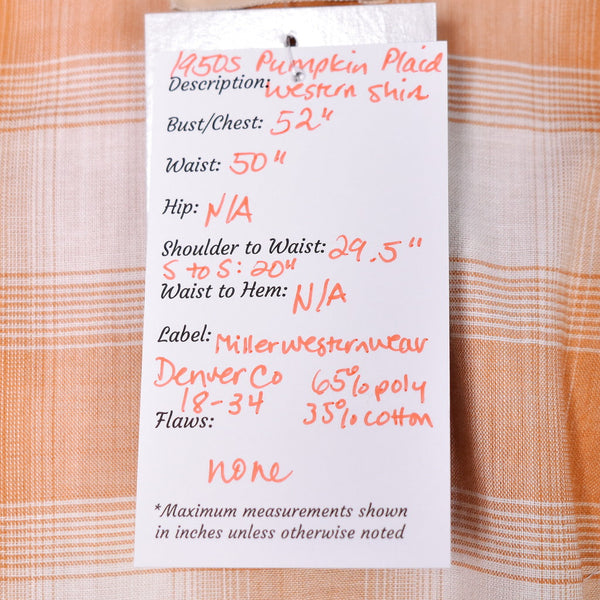 1950s Pumpkin Plaid
Description: Western Shirt
Bust/Chest: 52"
Waist: 50"
Hip: N/A
Shoulder to Waist: 29.5"
S to S: 20"
Waist to Hem: N/A
Label: Miller westernwear
Denver Co 65% poly
18-34 35% cotton
Flaws:
none
*Maximum measurements shown
in inches unless otherwise noted